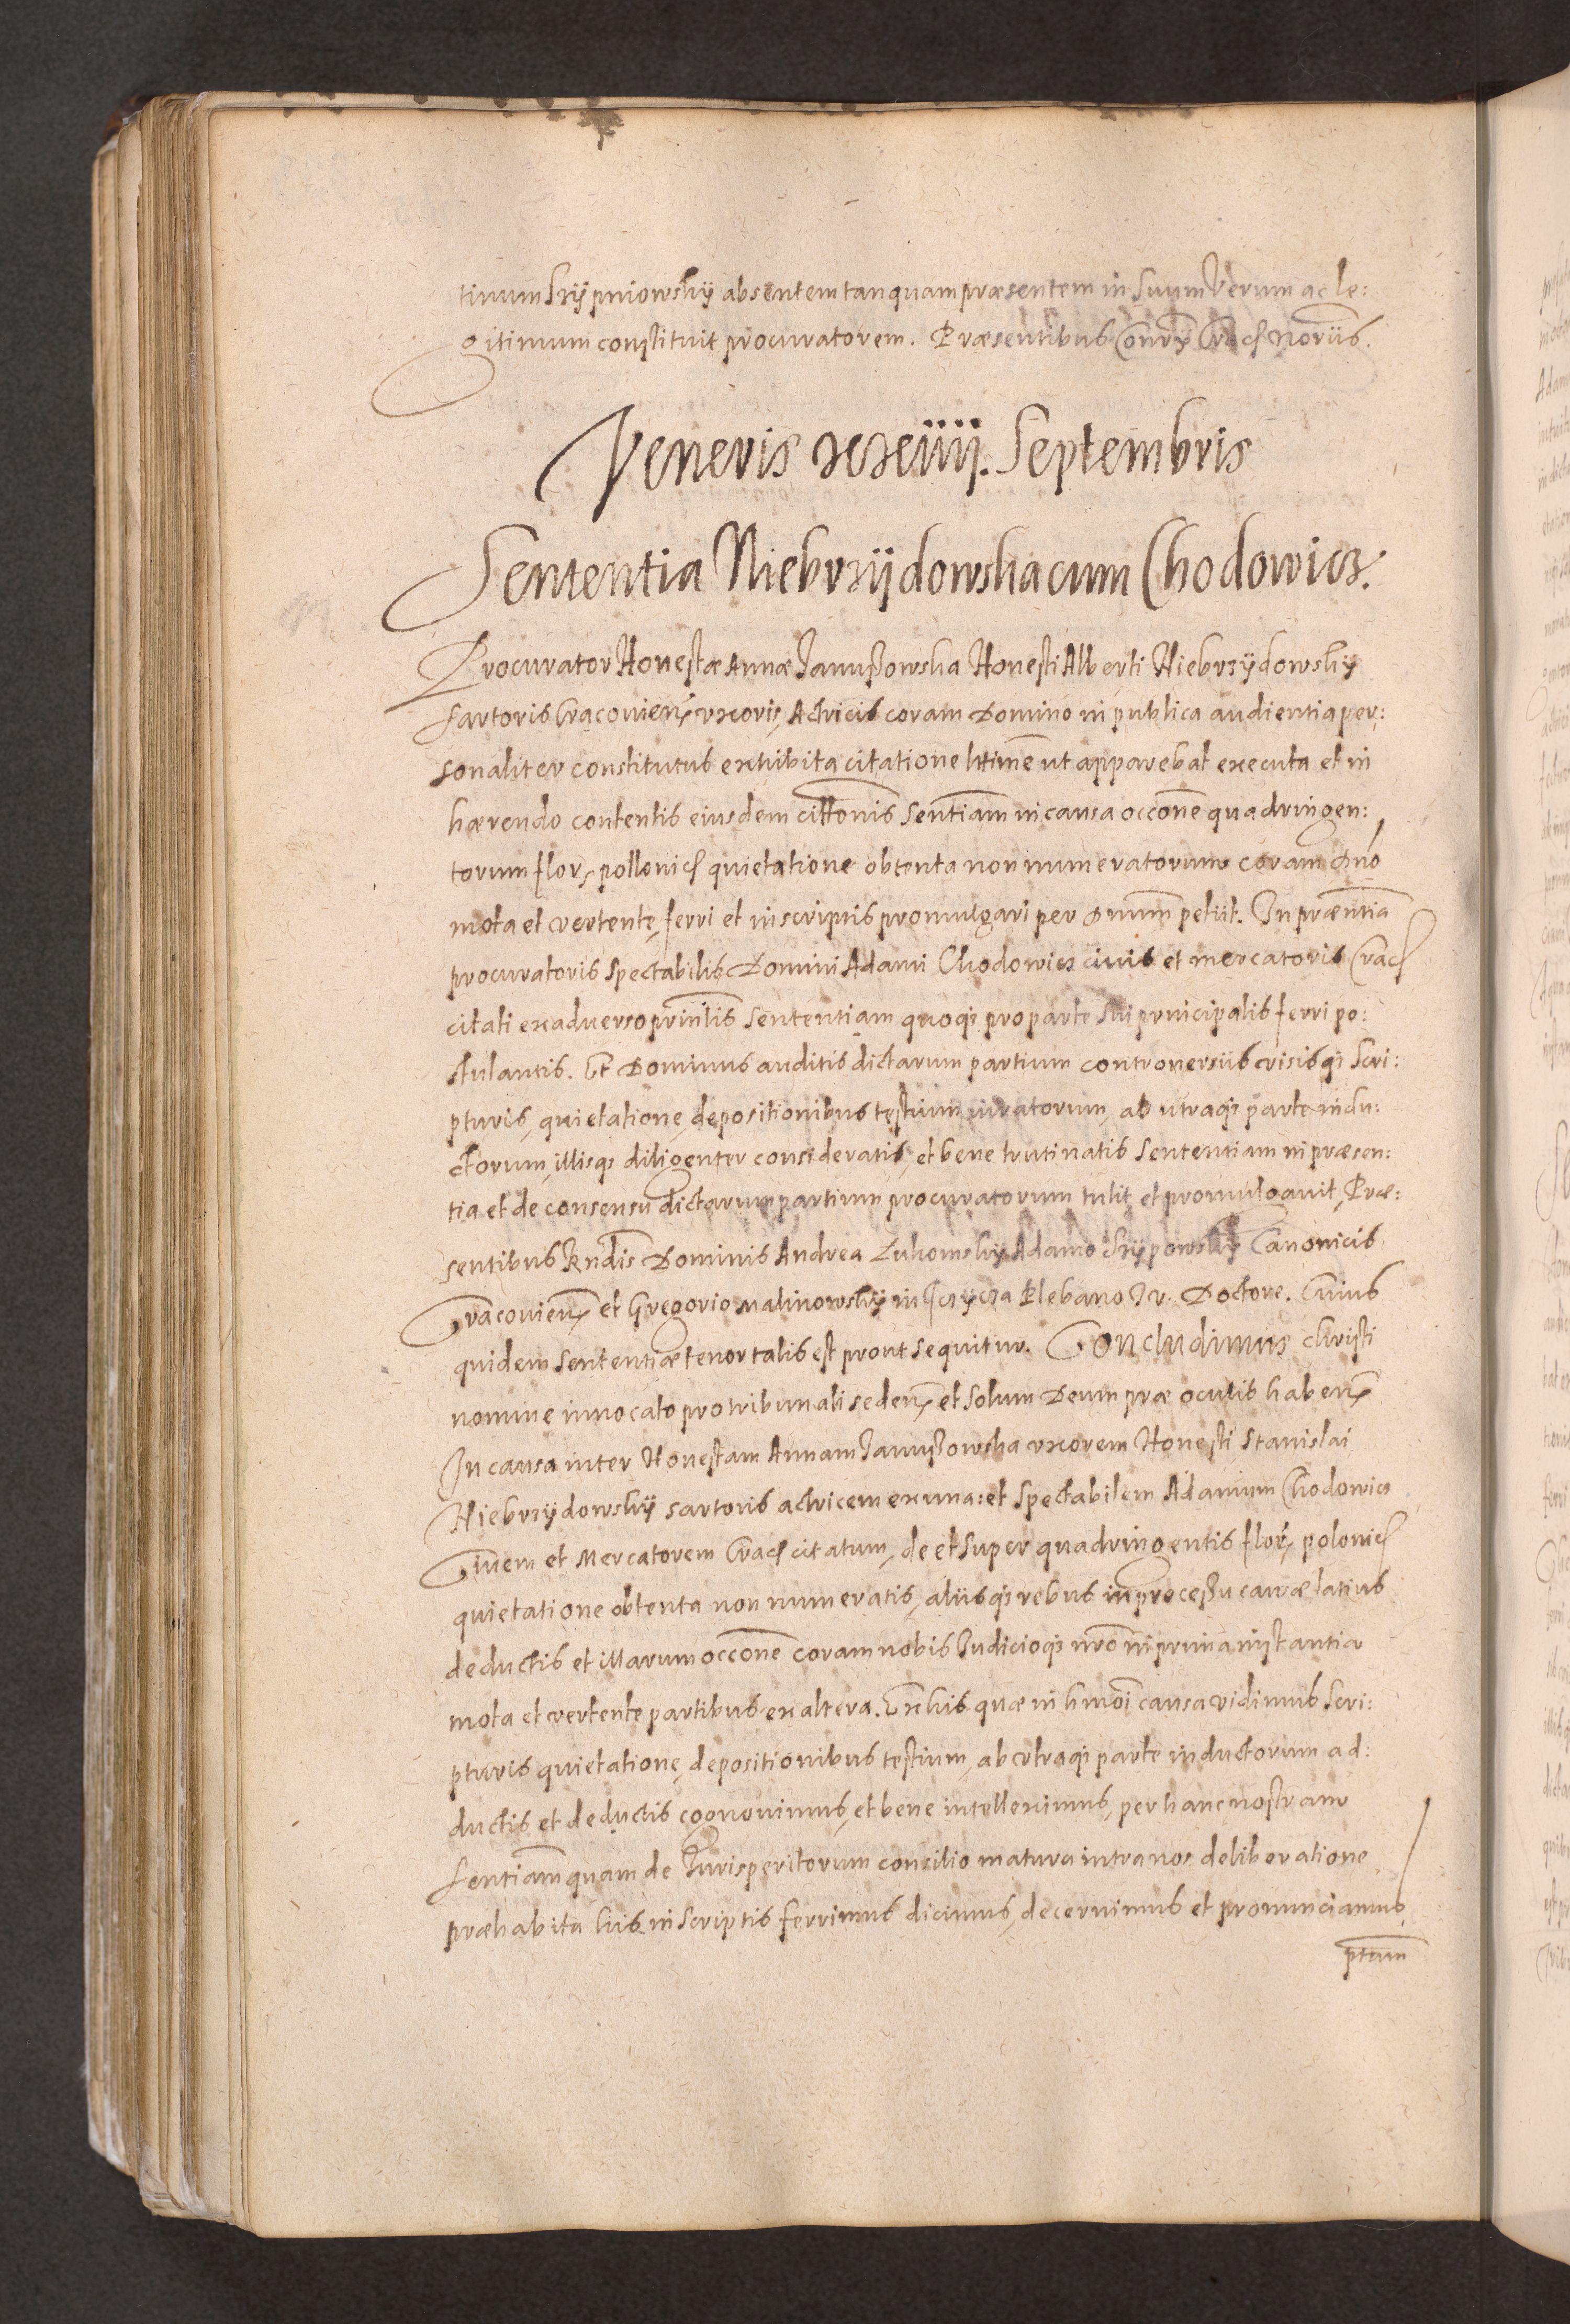 tinum Srzÿpniowskÿ absentem tanquam præsentem in suum verum ac le:
gitimum constituit procuratorem. Præsentibus Noriis.
Veneris xxiiij. Septembris
Sententia Niebrzÿdowska cum Chodowicz.
Procurator Honestæ Annæ Janussowska Honesti Alberti Niebrzÿdowskÿ
sartoris Cracovien̄ uxoris, Actricis coram Domino in publica audientia per:
sonaliter constitutus exhibita citatione ltime ut apparebat executa et in
hærendo contentis eiusdem cittonis sentiam in causa occone quadringen:
torum flor, pollonic quietatione obtenta non numeratorum coram Dno
mota et vertente, ferri et in scriptis promulgari per Dnum petiit. In præntia
procuratoris Spectabilis Domini Adami Chodowicz civis et mercatoris Crac
citati ex adverso prīntis sententiam quoq3 pro parte sui principalis ferri po:
stulantis. Et Dominus auditis dictarum partium controversiis visisq3 scri:
pturis, quietatione, depositionibus testium iuratorum, ab utraq3 parte indu:
ctorum, illisq3 diligenter consideratis, et bene trutinatis sententiam in præsen:
tia et de consensu dictarum partium procuratorum tulit et promulgavit, Præ:
sentibus Rndis Dominis Andrea Zukowskÿ Adamo Srzÿpowskÿ Canonicis
Cracovien̄ et Gregorio Malinowskÿ in Plebano J. v. Doctore. Cuius
quidem sententiæ tenor talis est prout sequitur. Concludimus christi
nomine invocato pro tribunali seden̄ et solum Deum præ oculis haben̄
In causa inter Honestam Annam Janussowska uxorem Honesti Stanislai
Niebrzÿdowskÿ sartoris actricem ex una: et spectabilem Adamum Chodowicz
Civem et Mercatorem Crac citatum, de et super quadringentis flor, polonic
quietatione obtenta non numeratis, aliisq3 rebus in processu causæ latius
deductis et illarum occone coram nobis Judicioq3 nro in prima instantia
mota et vertente partibus ex altera. Ex his quæ in hmoi causa vidimus scri:
pturis quietatione, depositionibus testium, ab utraq3 parte inductorum ad:
ductis et deductis cognovimus, et bene intelleximus, per hanc nostram
sentiam quam de Jurisperitorum consilio matura intra nos deliberatione
præhabita his in scriptis ferrimus dicimus, decernimus et pronunciamus
ptum